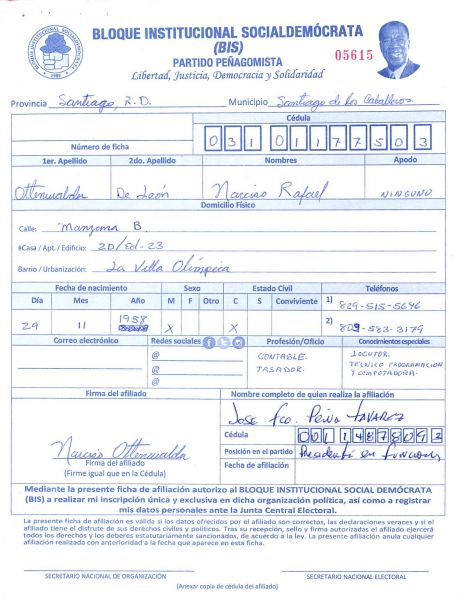 BLOQUE INSTITUCIONAL SOCIALDEMÓCRATA
(BIS)
PARTIDO PEÑAGOMISTA
Libertad, Justicia, Democracia y Solidaridad
05615
Provincia Santiago, R.D. Municipio Santiago de los Caballeros
Cédula
Número de ficha 031 0117750 3
1er. Apellido 2do. Apellido Nombres Apodo
Ottenwalder De León Narciso Rafael NINGUNO
Domicilio Físico
Calle: Manzana B
#Casa / Apt. / Edificio: 2D/Ed-23
Barrio / Urbanización: La Villa Olímpica
Fecha de nacimiento Sexo Estado Civil Teléfonos
Día Mes Año M F Otro C S Conviviente 1) 829-515-5646
29 11 1958 X X 2) 809-583-3179
Correo electrónico Redes sociales Profesión/Oficio Conocimientos especiales
@ CONTABLE. LOCUTOR.
@ TASADOR. TECNICO PROGRAMACION
@ Y COMPUTADORA.
Firma del afiliado Nombre completo de quien realiza la afiliación
Jose Fco. Peña Tavarez
Cédula 001 1487809 2
Narciso Ottenwalder
Posición en el partido Presidente en Funciones
Firma del afiliado
(Firme igual que en la Cédula)
Fecha de afiliación
Mediante la presente ficha de afiliación autorizo al BLOQUE INSTITUCIONAL SOCIAL DEMÓCRATA
(BIS) a realizar mi inscripción única y exclusiva en dicha organización política, así como a registrar
mis datos personales ante la Junta Central Electoral.
La presente ficha de afiliación es válida si los datos ofrecidos por el afiliado son correctos, las declaraciones veraces y si el
afiliado tiene el disfrute de sus derechos civiles y políticos. Tras su recepción, sello y firma autorizados el afiliado ejercerá
todos los derechos y los deberes estatutariamente sancionados, de acuerdo a la ley. La presente afiliación anula cualquier
afiliación realizada con anterioridad a la fecha que aparece en esta ficha.
SECRETARIO NACIONAL DE ORGANIZACIÓN SECRETARIO NACIONAL ELECTORAL
(Anexar copia de cédula del afiliado)